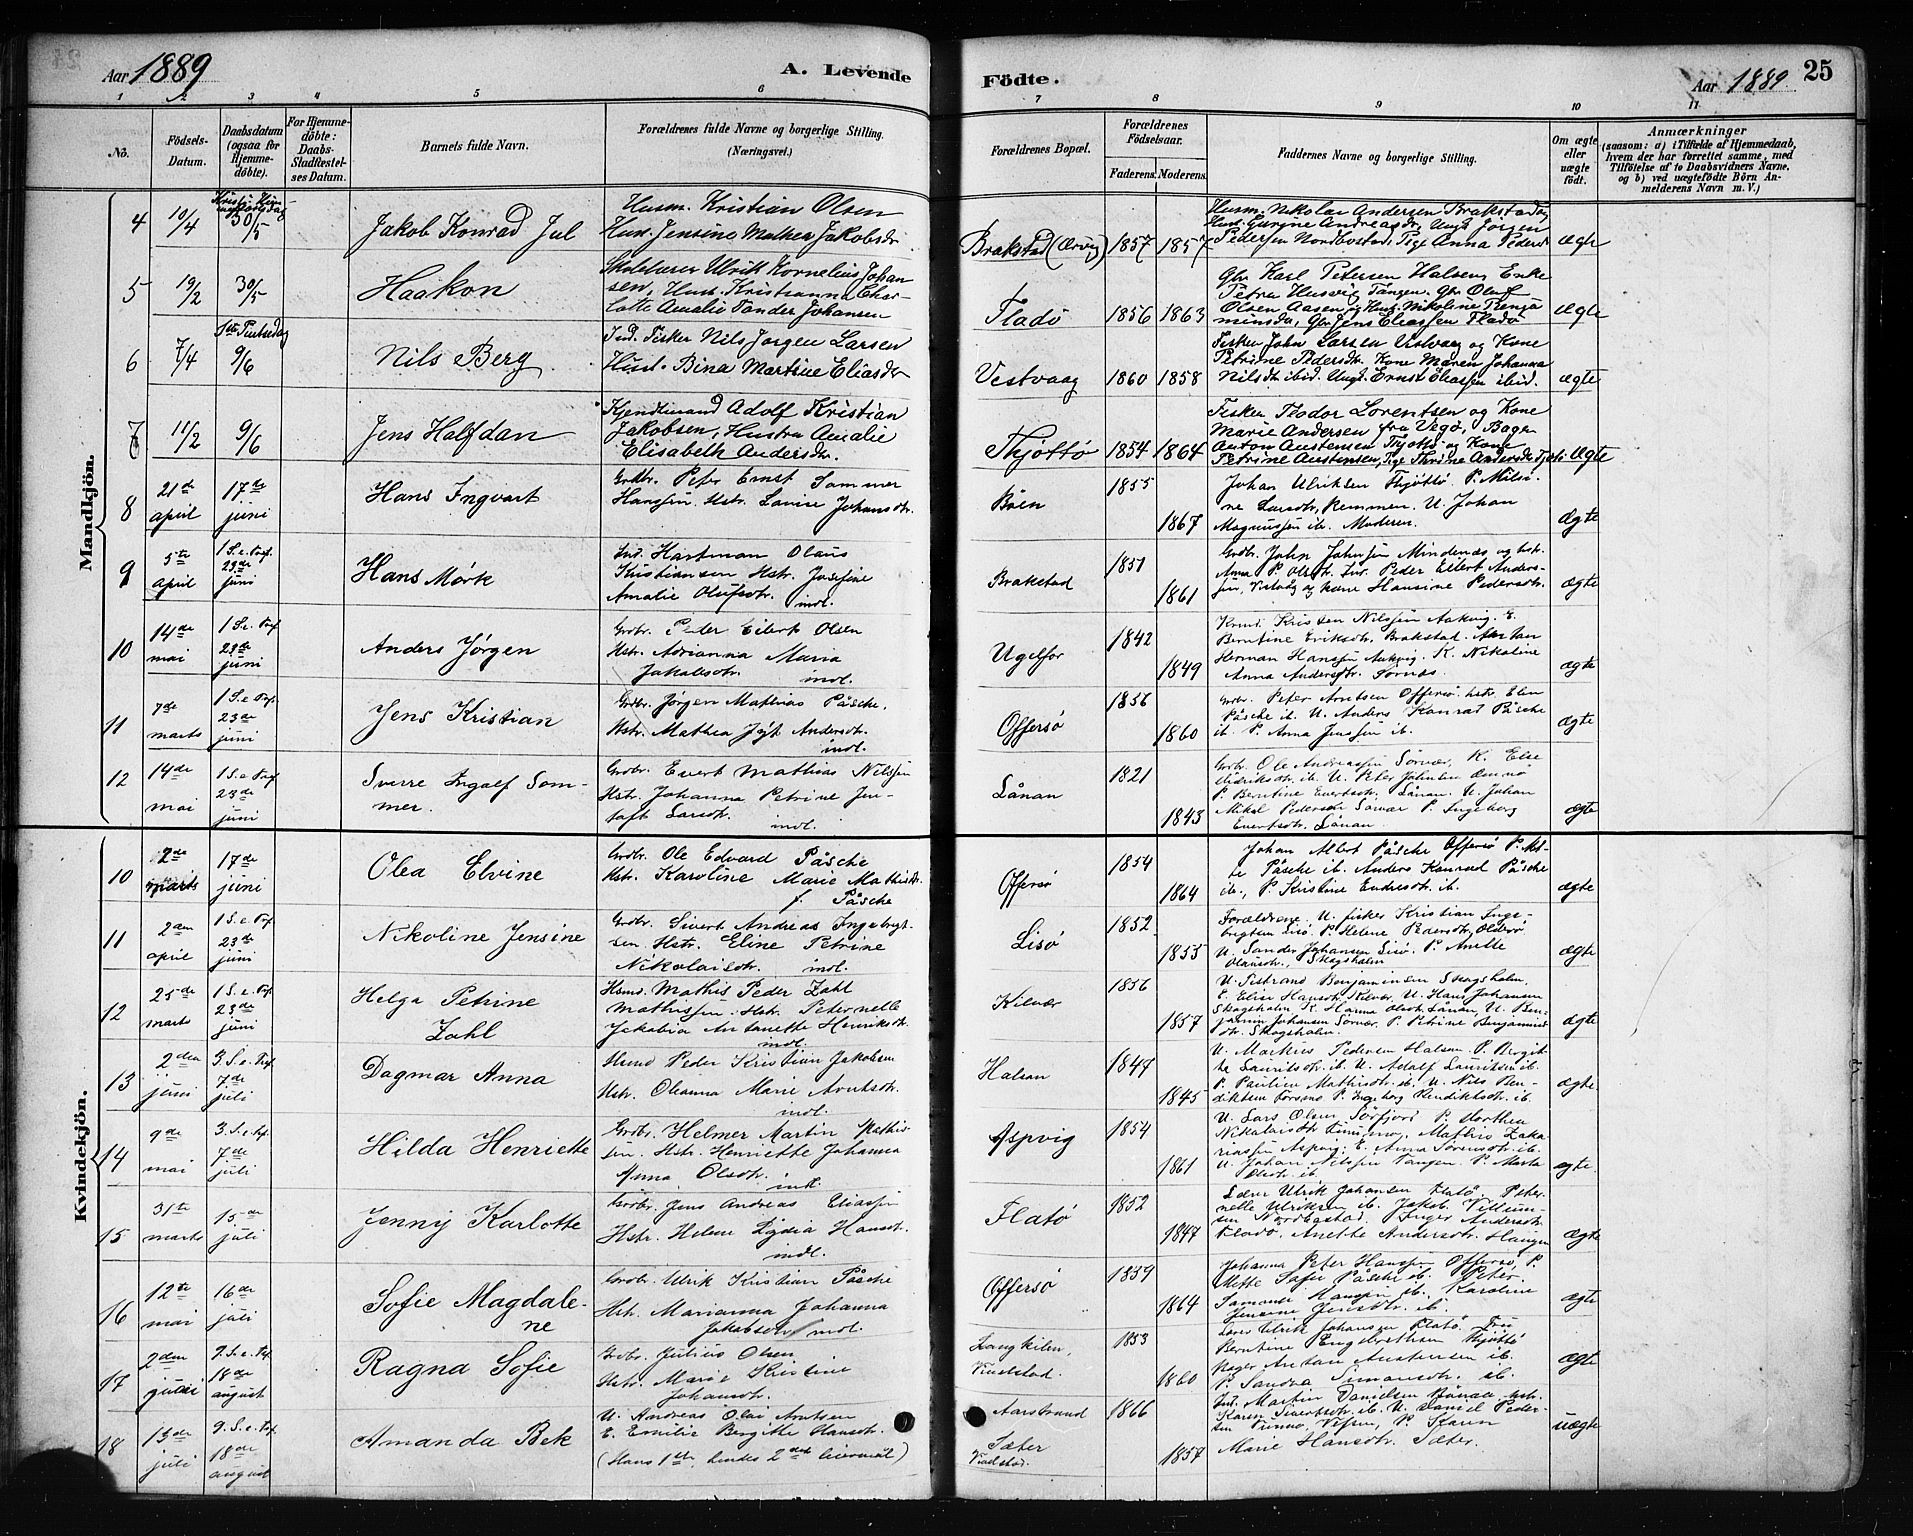 Aar 1889
A. Levende
Födte.
Aar 1889.
25
1 2 3 4 5 6 7 8 9 10 11
No.
Födsels-
Datum.
Daabsdatum
(ogsaa for
Hjemme-
döbte).
For Hjemme-
döbte:
Daabs-
Stadfæstel-
ses Datum.
Barnets fulde Navn.
Forældrenes fulde Navne og borgerlige Stilling.
(Næringsvei.)
Forældrenes Bopæl.
Forældrenes
Födselsaar.
Faderens. Moderens.
Faddernes Navne og borgerlige Stilling.
Om ægte
eller
uægte
født.
Anmærkninger
(saasom: a) i Tilfælde af Hjemmedaab,
hvem der har forrettet samme, med
Tilföielse af to Daabsvidners Navne,
og b) ved uægtefödte Börn An-
melderens Navn m. V.)
Mandkjön.
4 10/4 30/5 Jakob Konrad Jul
Husm. Kristian Olsen
Hust. Jensine Jakobsdr
Brakstad 1857 1857
Husm. Nikolai Andersen Brakstad
Pedersen Tige Anna Pedersd
ægte
5 19/2 30/5 Haakon
Skolelærer Ulrik Kornelius Johan
sen, Hust. Kristianna Char-
lotte Amalie Tander Johansen
Fladö 1856 1863
Gbr Karl Petersen Halsen, Enke
Petra Husvig Tangen, Gbr Oluf
Olsen Aasen og Hust. Nikoline Benja
minsdr, Gbr Jens Eliassen Fladö
ægte
6 7/4 9/6 Nils Berg
Ind. Fisker Nils Jörgen Larsen
Hust. Bina Martine Eliasdr
Vestvaag 1860 1858
Fisker John Larsen og Kone
Petrine Pedersdr. Kone Maren Johanna
Nilsdt ibid. Ungk. Ernst Eliassen ibid.
ægte
7 11/2 9/6 Jens Halfdan
Adolf Kristian
Jakobsen, Hustru Amalie
Elisabeth Andersdr.
Thjöttö 1854 1864
Fisker Teodor Lorentsen og Kone
Marie Andersen fra Vegö, Bager
Anton Austensen, Tjöttö og Kone
Petrine Austensen, Pige Thrine
ægte
8 21de april 17de juni Hans Ingvart
Grdbr. Peter Ernst Sommer
Hanssen Hstr. Lovise Johansdr.
Böen 1855 1867
Johan Ulriksen Thjöttö. P. Milsi
ne Larsdtr, Remmen. U. Johan
Magnussen ib. Moderen.
ægte
9 5te april 1 S. e. Tref. 23de juni Hans Mørk
Ind. Hartman Olaus
Kristiansen Hstr. Josefine
Amalie Olufsdtr. indl.
Brakstad 1851 1861
Grdbr. John Johnsen Mindenæs og hstr.
Anna P. Olsdtr. Inr. Peder Eilert Anders-
sen, Vistvåg og kone Hansine Pedersdtr.
ægte
10 14de mai 1 S. e. Tref. 23de juni Anders Jørgen
Grdbr. Peder Eilert Olsen
Hstr. Adrianna Maria
Jakobsdtr. indl.
Ugelfor 1842 1849
Kristen Nilssen Aakvig. E.
Berntine Eriksdtr, Brakstad. Anton
Herman Hanssen Aakvig. K. Nikoline
Anna Andersdtr. Sørnæs.
ægte
11 7de marts 1 S. e. Tref. 23de juni Jens Kristian
Grdbr. Jörgen Mathias Påsche.
Hstr. Mathea Andersdtr.
indl.
Offersø 1856 1860
Grdbr. Peter Arntsen Offersø. hstr. Elen
Påsche ib. U. Anders Konrad Påsche
ib. P. Anna Jenssen ib.
ægte
12 14de mai 1 S. e. Tref. 23de juni Sverre Ingolf Som-
mer.
Grdbr. Evert Mathias Nilssen
Hstr. Johanna Petrine Jen-
toft Larsdtr. indl.
Lånan 1821 1843
Grdbr. Ole Andreassen Sørvær, K. Else
Didriksdtr. ib. U. Peter Johnsen Dønnö
P. Berntine Evertsdtr. Lånan. U. Johan
Mikal Pedersen Sörvær P. Ingeborg
Evertsdtr. Lånan.
ægte
Kvindekjön.
10 2de marts 17de juni Olea Elvine
Grdbr. Ole Edvard Påsche
Hstr. Karoline Marie Mathisdtr.
f. Påsche
Offersø 1854 1864
Johan Albert Påsche Offersø P. Met-
te Påsche ib. Anders Konrad Påsche
ib., P. Kristine Endersdtr. ib.
ægte
11 2den april 1 S. e. Tref. 23de juni Nikoline Jensine
Grdbr. Sivert Andreas Ingebrigt-
sen. Hstr. Eline Petrine
Nikolaisdtr. indl.
Lisø 1852 1855
Forældrene. U. fisker Kristian Inge-
brigtsen Lisø. P. Helene Pedersdtr,
U. Sander Johansen Lisø. P. Anette
Olausdtr., Skogsholm
ægte
12 25de marts 1 S. e. Tref. 23de juni Helga Petrine
Zahl
Hsmd. Mathis Peder Zahl
Mathissen. Hstr. Peternelle
Jakobia Antonette Henriksdtr.
indl.
Kilvær 1856 1857
U. Tistrand Benjaminsen Skogsholm.
E. Elise Hansdtr. Kilvær. U. Hans Johansen
Skogsholm K. Hanna Olsdtr. Lånan, U. Ben-
jamin Johansen Sørvær. P. Petrine Benjamins
dtr. Skogsholm.
ægte
13 2den juni 3. S. e. Tref. 7de juli Dagmar Anna
Hsmd Peder Kristian Jakobsen
Hstr. Oleanna Marie Arntsdtr.
indl.
Halsan 1847 1845
U. Markus Pedersen Halsan P. Bergit-
te Lauritsdtr. ib. U. Adolf Lauritsen ib.
P. Pauline Mathisdtr. ib. U. Nils Ben-
diktsen Forsmo P. Ingeborg Bendiktsdtr. ib.
ægte
14 9de mai 3. S. e. Tref. 7de juli Hilda Henriette
Grdbr. Helmer Martin Mathis-
sen. Hstr. Henriette Johanna
Anna Olsdtr. indl.
Aspvig 1854 1861
U. Lars Olsen Sørfjord P. Dorthea
Nikolaisdtr. Mathis Zaka
riassen Aspvig. E. Anna Sörensdtr. ib.
U. Johan Nilssen Tangen. P. Marta
Olsdtr. ib.
ægte
15 31te marts 15de juli Jennij Karlotte
Grdbr. Jens Andreas Eliassen
Hstr. Helene Lydia Hansdtr.
indl.
Flatö 1852 1847
Lærer Ulrik Johansen Flatø. Peter-
nelle Ulriksen ib. Jakob Villum-
sen Nordbostad. Inger Andersdtr
Fladö. Anette Andersdtr. Haugen
ægte
16 12te mai 16de juli Sofie Magdale-
ne
Grdbr. Ulrik Kristian Påsche
Hstr. Marianna Johanna
Jakobsdtr indl.
Offersø 1859 1864
Johanna Peter Hanssen Offersø, P.
Mette Sofie Påsche ib. Peter
Hanssen ib. Karoline
Jensine Jensdtr. ib.
ægte
17 2den juli 9. S. e. Tref. 18de august Ragna Sofie
Grdbr. Julius Olsen
Hstr. Marie Kristine
Johansdtr.
Langkilen,
Vindstad. 1853 1860
Lærer Ulrik Johansen Flatö. Fru
Berntine Engebretsen Thjøttø
Bager Anton Austensen ib.
P. Sandra Simonsdtr. ib.
ægte
18 13de juli 9. S. e. Tref. 18de august Amanda Bek
U. Andreas Olai Arntsen
E. Emilie Bergitte Hansdtr.
(Hans 1ste, hendes 2det leiermål)
Aarstrand
Sæter
Vindstad. 1866 1857
Ind. Martin Danielsen hstr.
Karen Sivertsdtr. ib. U. Daniel Peder-
sen P. Karen
Marie Hansdtr. Sæter.
uægte